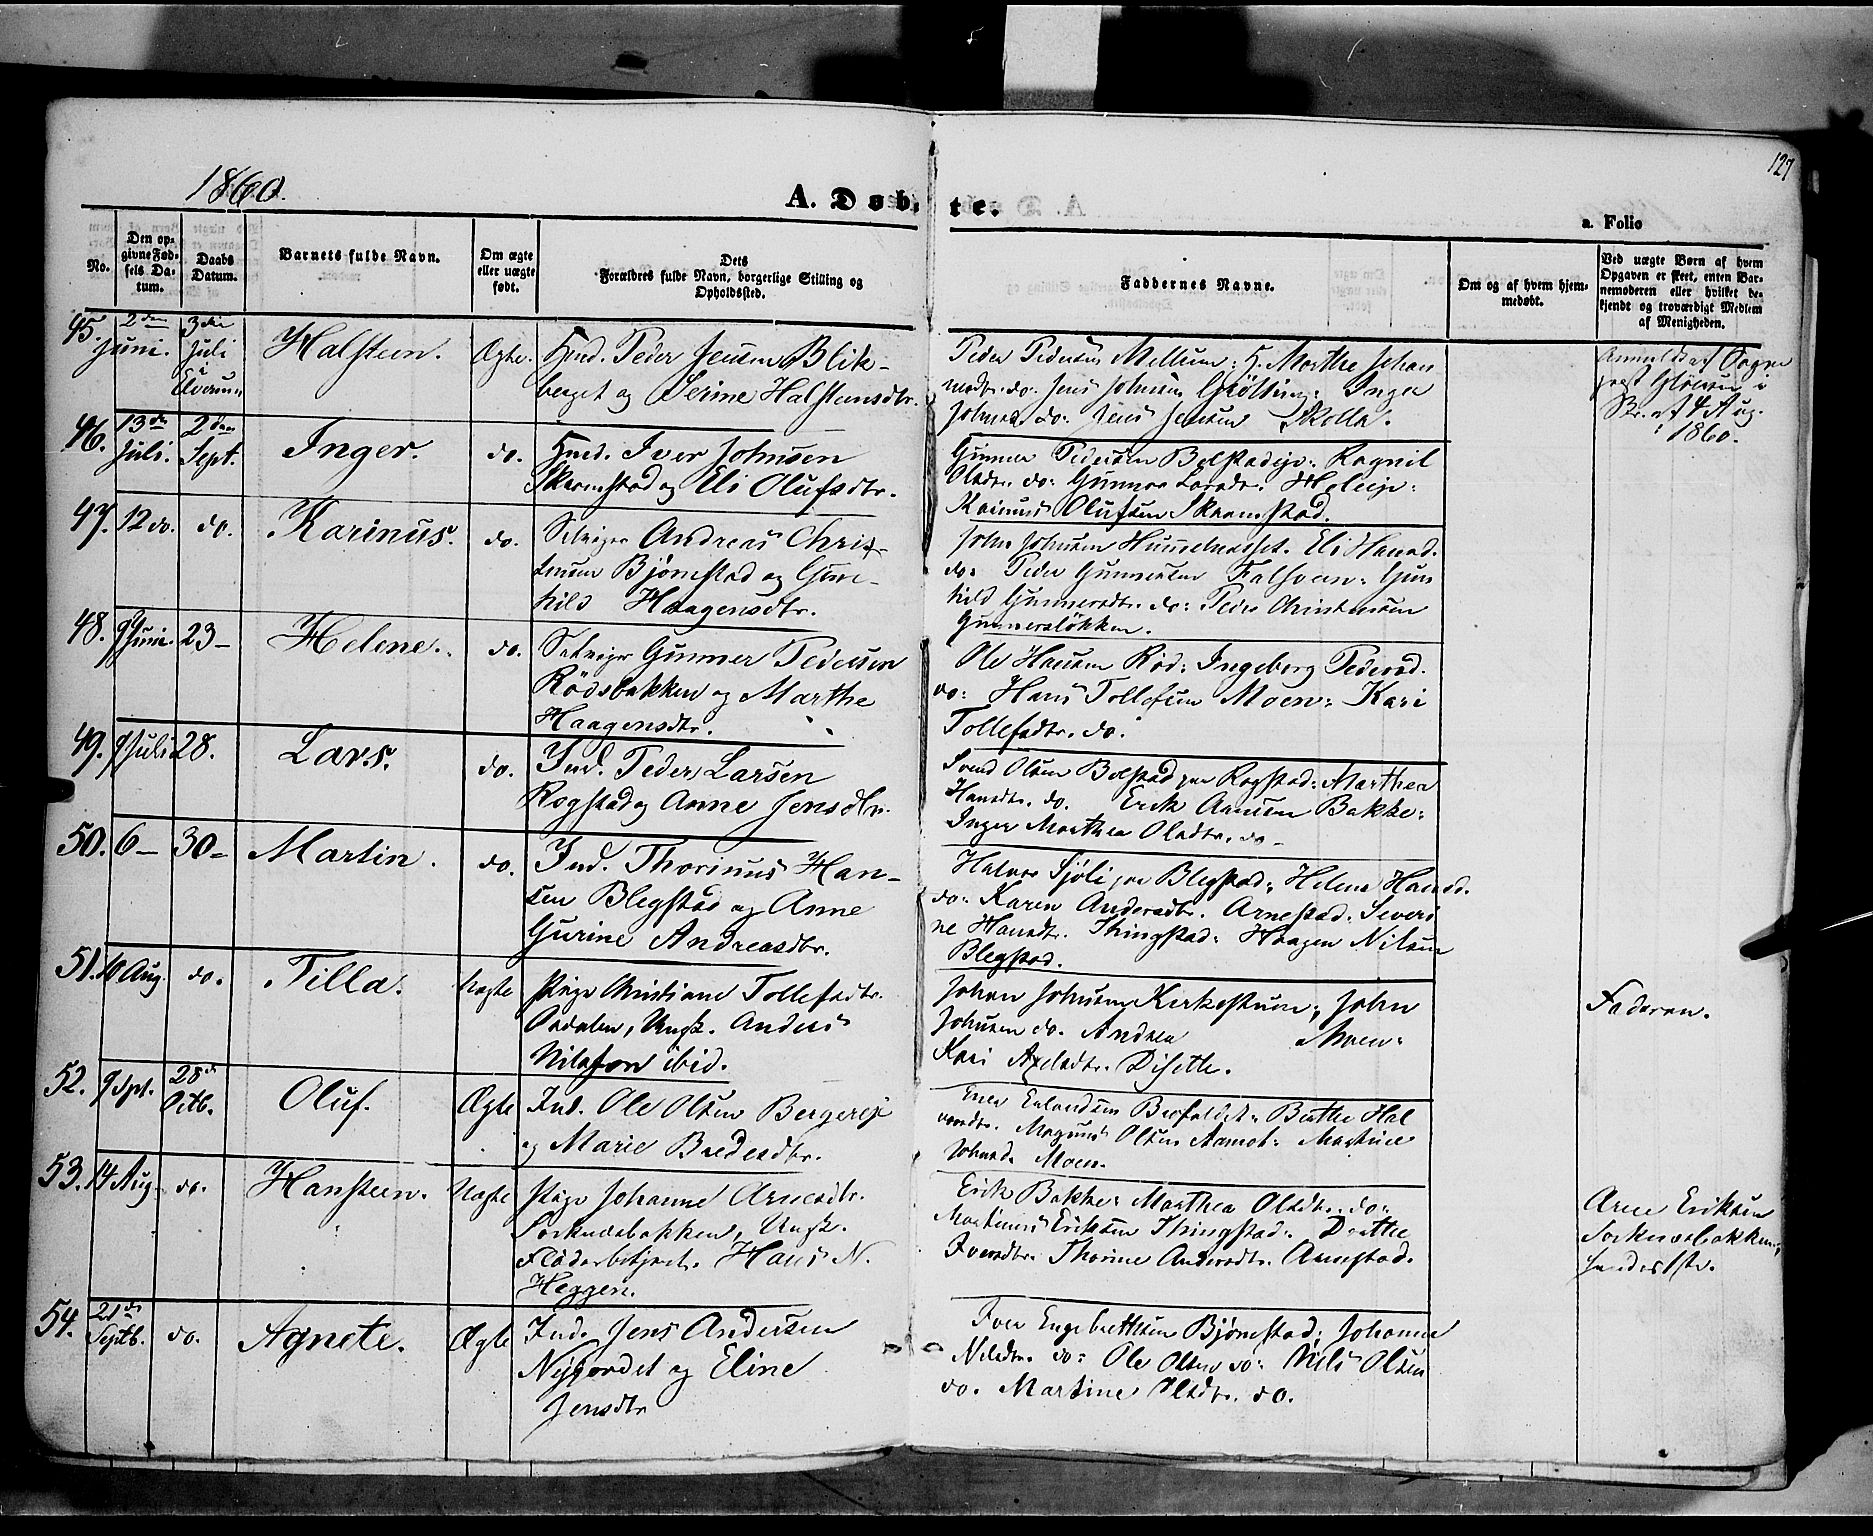 127
1860.
A. Døbte.
a. Folio
No.
Den opgivne Fødsels Datum.
Daabs Datum.
Barnets fulde Navn.
Om ægte eller uægte født.
Dets Forældres fulde Navn, borgerlige Stilling og Opholdssted.
Faddernes Navne.
Om og af hvem hjemmedøbt.
Ved uægte Børn af hvem Opgaven er skeet, enten Barnemoderen eller hvilket bekjendt og troværdigt Medlem af Menigheden.
45. 2den Juni. 3die Juli i Elverum Halsteen. Ægte.
Peder Jensen Blik-
berget og Serine Halsteensdtr.
Peder Pedersen Mellum: H. Marthe Johan
Inger
Jens Jensen Skolla.
Br. af 4 Aug.
1860.
46. 13de Juli. 2den Sept. Inger. do.
Iver Johnsen
Skramstad og Eli Olufsdtr.
Gunner Pedersen Ragnil
Olsdtr. do: Gunnor Larsdr.
Karinus Olufsen Skramstad.
47. 12 do. do. Karinus. do.
Selveier Andreas Chris-
tensen Bjørnestad og Gun-
hild Haagensdtr.
John Johnsen Eli Hansd.
do: Peder Gunnersen Gun
hild Gunnersdtr. do: Peder Christensen
Gunnersløkken.
48. 9 Juni. 23- Helene. do.
Selveier Gunner Pedersen
Rødsbakken og Marthe
Haagensdtr.
Ole Hansen Rød: Ingeborg Pedersd.
do: Hans Tollefsen Moen: Kari
Tollefsdtr. do.
49. 9 Juli 28. Lars. do.
Ind. Peder Larsen
Rogstad og Anne Jensdtr.
Svend Olsen Bolstad Rogstad: Marthea
Hansdtr. do. Erik Arnesen Bakke:
Inger Marthea Olsdtr. do-
50. 6- 30- Martin. do.
Ind. Thorinus Han-
sen Blegstad og Anne
Gurine Andreasdtr.
Halvor Sjøli Blegstad: Helene Hansd.
do: Karen Andersdtr. Arnestad. Severi
ne Hansdtr. Thingstad: Haagen Nilsen
Blegstad.
51. 10 Aug. do. Tilla. Uægte
Pige Christiane Tollefsdtr.
Osdalen, Ungk. Anders
Nilssøn ibid.
Johan Johnsen Kirkestuen; John
Johnsen do. Andrea Moen:
Kari Axelsdtr. Disette.
Faderen.
52. 9 Spt. 28de Octb. Oluf. Ægte
Ind. Ole Olsen Bergereje
og Marie Bredesdtr.
Berthe Hal
vorsdtr. Magnus Olsen Aamot: Martine
Johnsd. Moen.
53. 14 Aug. do. Hansteen. Uægte
Pige Johanne Arnesdtr.
Sorknæsbakken, Ungk.
Flødarbejder Hans N.
Heggen.
Erik Bakke: Marthea Olsdtr. do:
Martinus Eriksen Thingstad: Dorthe
Iversdtr. Thorine Andersdtr. Arnestad.
Arne Eriksen
Sorknæsbakken,
54. 21de Septb. do. Agnete. Ægte
Ind. Jens Andersen
Nygordet og Eline
Jensdtr
Iver Engebrettsen Bjørnestad; Johanne
Nilsdtr. do: Ole Olsen do: Nils Olsen
do. Martine Olsdtr. do.